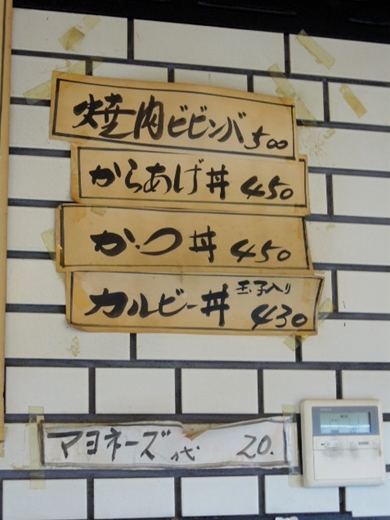 焼肉ビビンバ 500
からあげ丼 450
かつ丼 450
カルビー丼 玉子入り 430
マヨネーズ代 20.